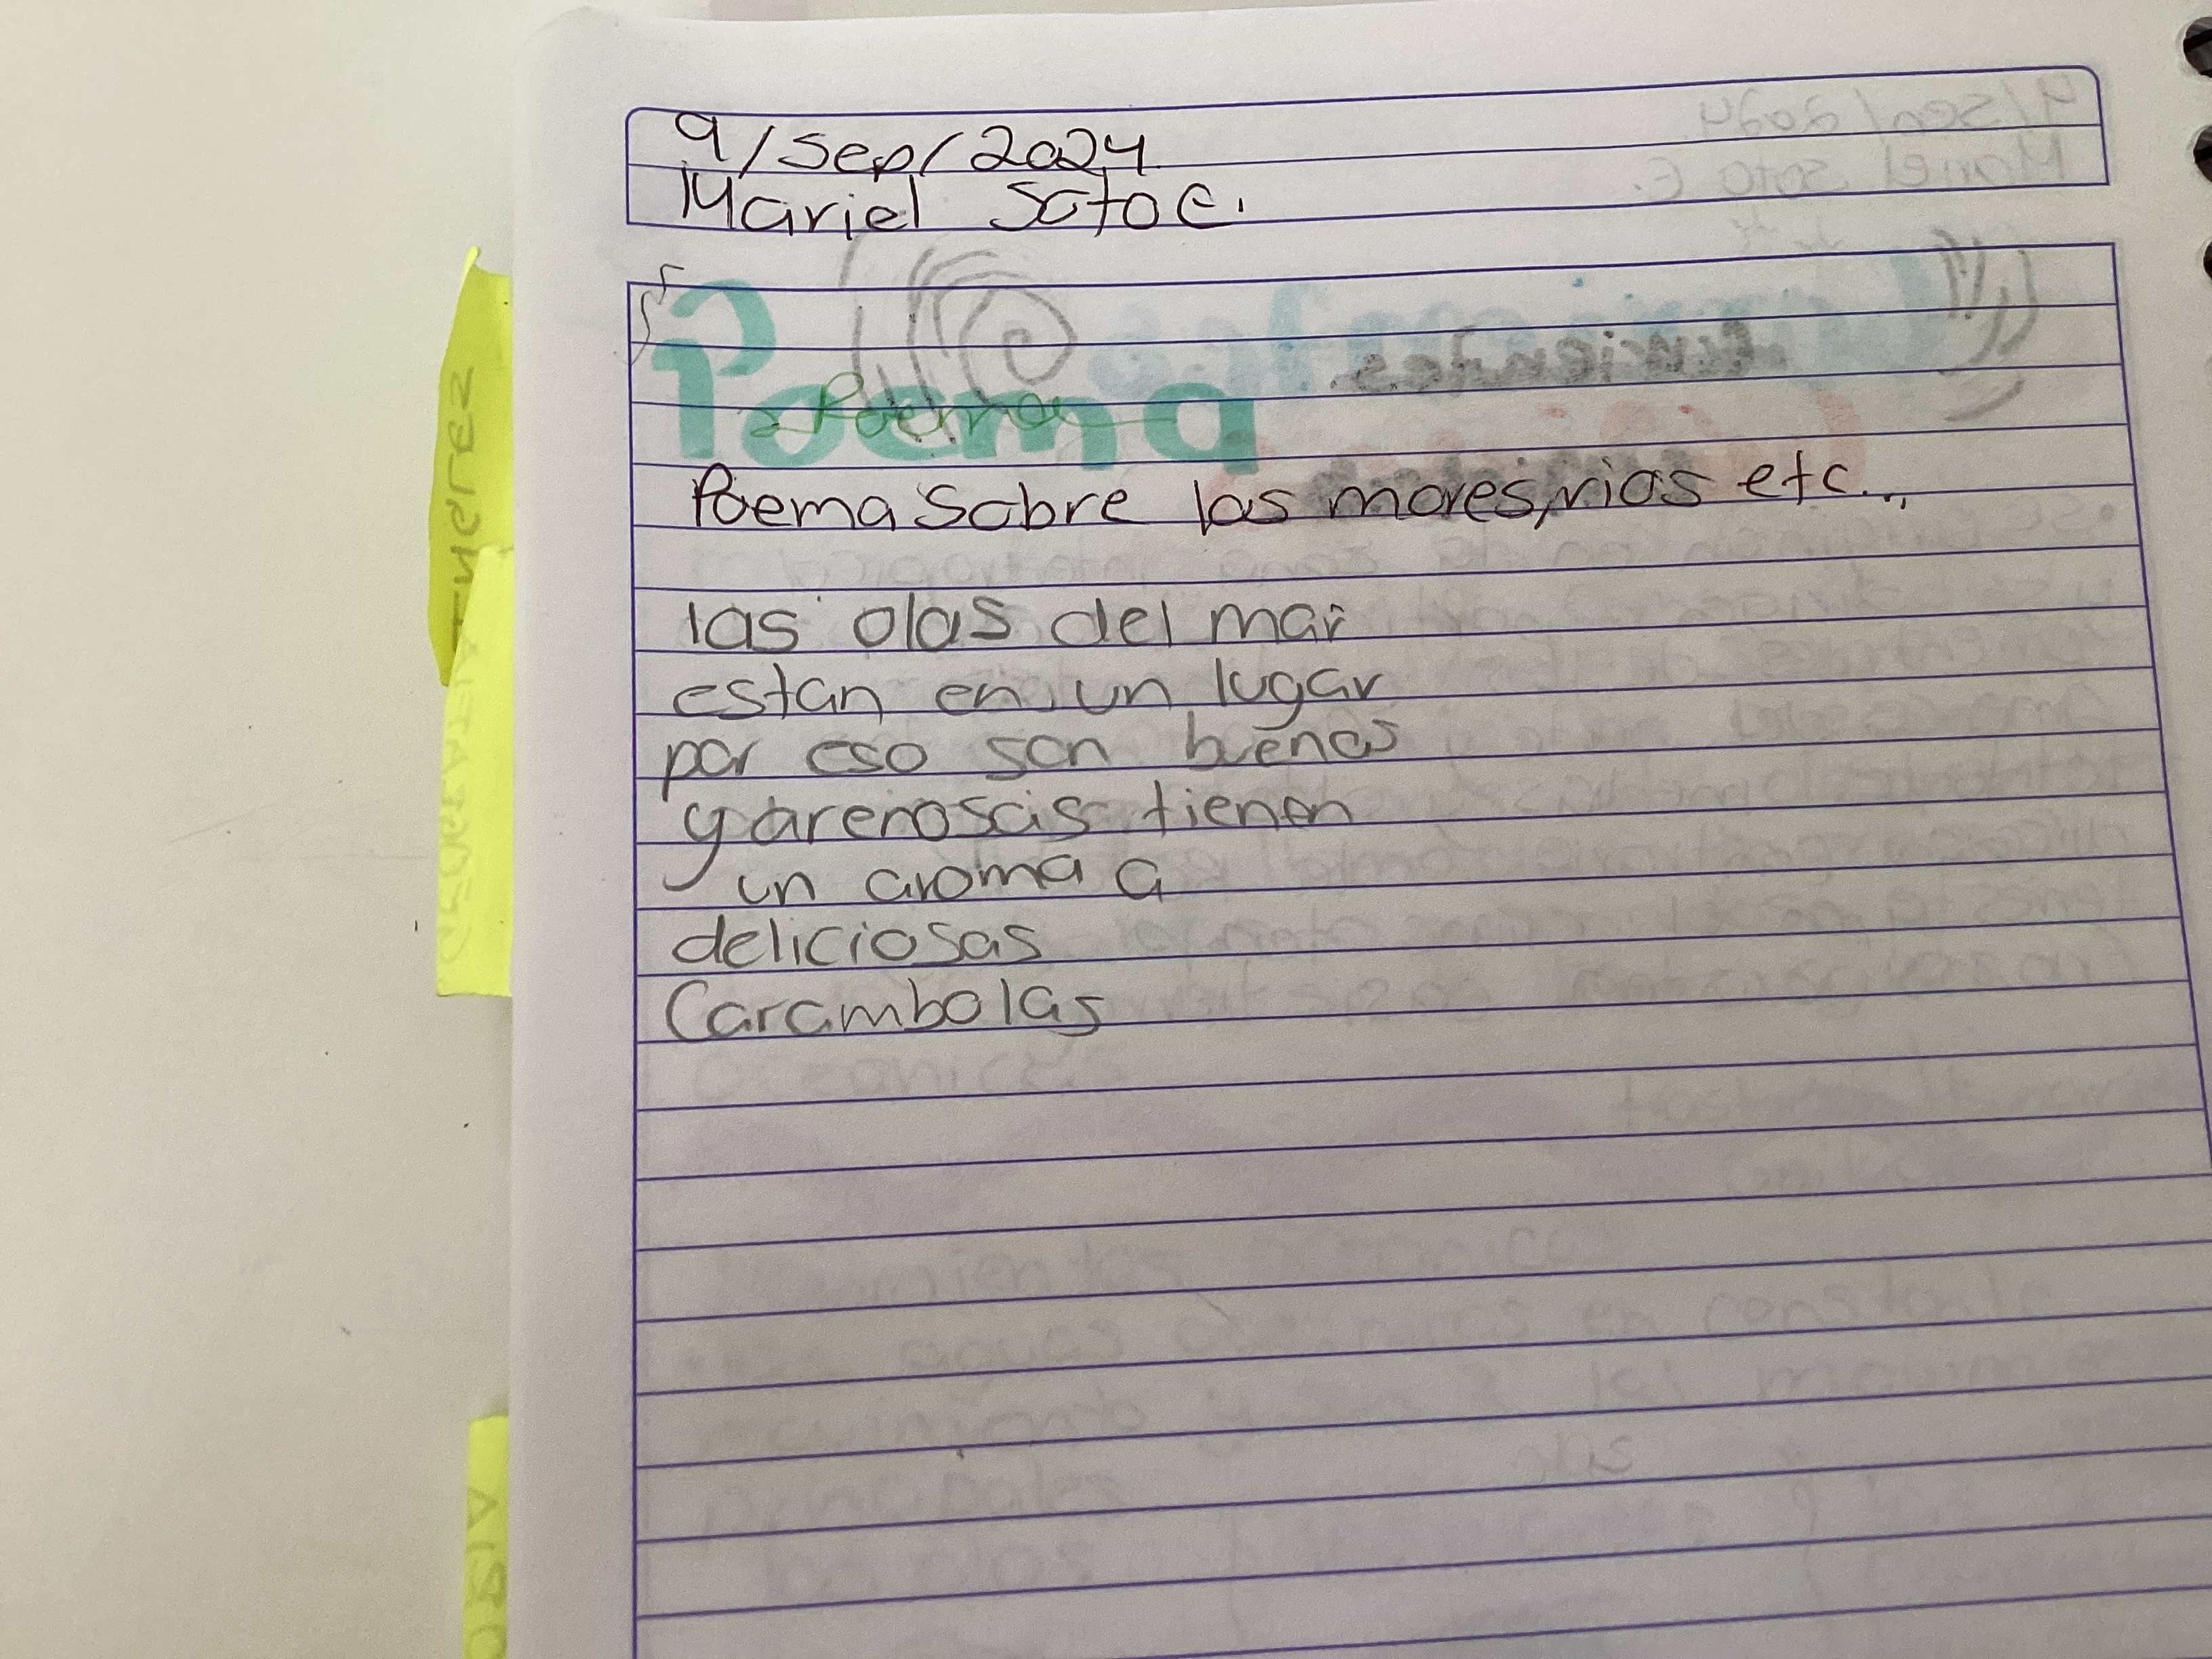 9/Sep/2024
Mariel Soto E.
Poema
Poema
Poema Sobre los mares, rios etc...
las olas del mar
estan en un lugar
por eso son buenas
y arenosas tienen
un aroma a
deliciosas
Carambolas
INGLES